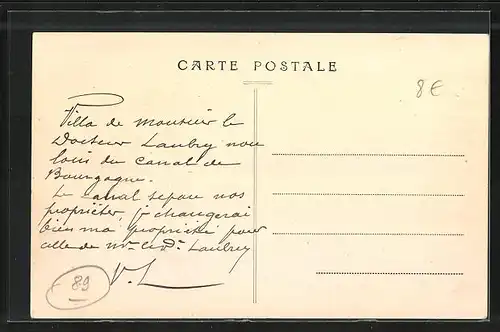 CARTE POSTALE
8€
Villa de monsieur le
Docteur Laubry non
loin du canal de
Bourgogne.
Le canal sépare nos
propriéter, je changerai
bien ma propriété pour
celle de Mr. Laubry
V. L
89